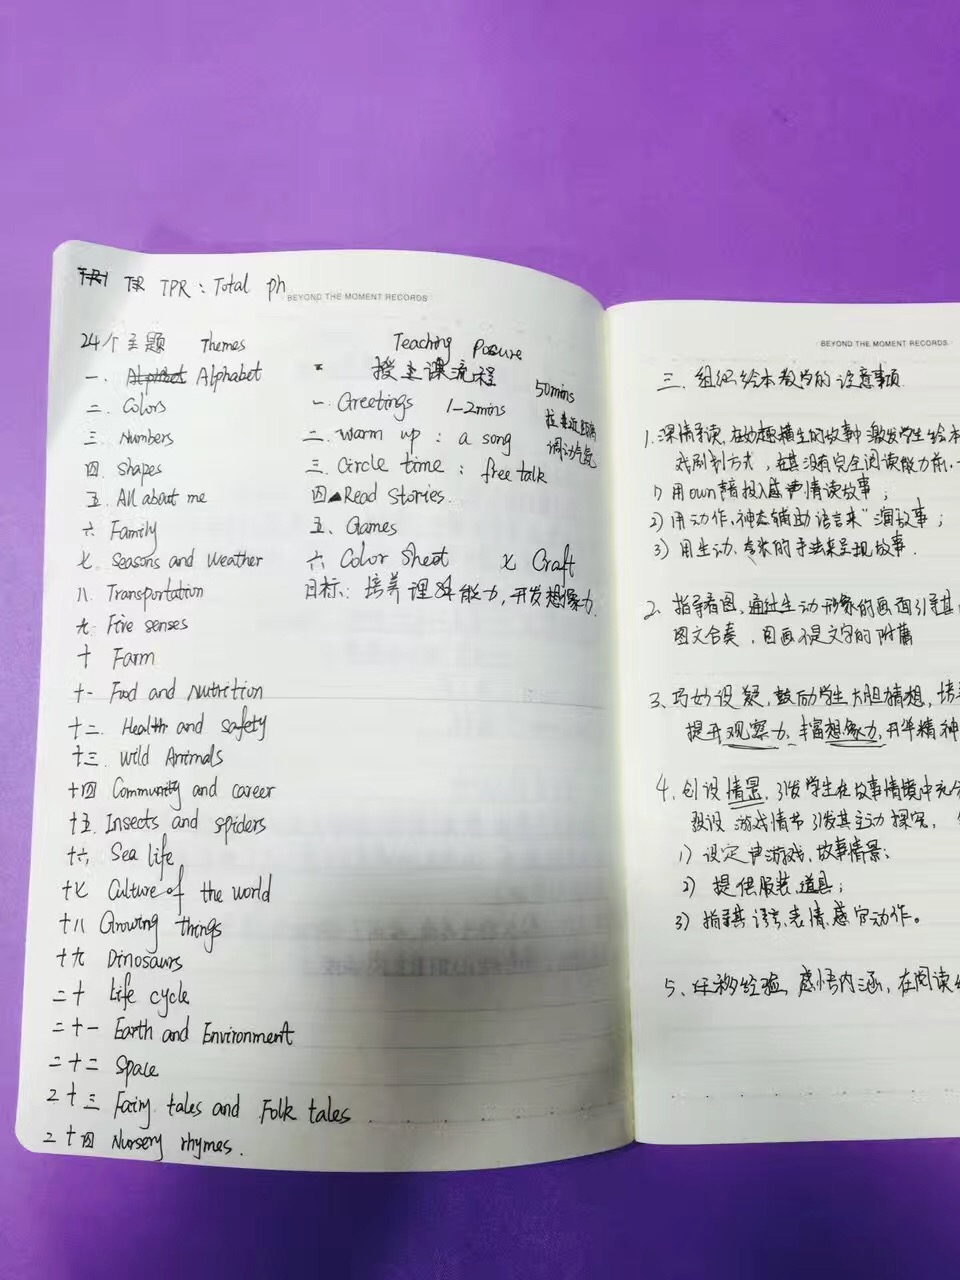 TPR TPR : Total ph
BEYOND THE MOMENT RECORDS
24个主题 Themes
一. Alphabet
二. Colors
三. Numbers
四. Shapes
五. All about me
六. Family
七. Seasons and Weather
八. Transportation
九. Five senses
十 Farm
十一 Food and Nutrition
十二. Health and safety
十三. Wild Animals
十四 Community and career
十五. Insects and spiders
十六 Sea life
十七 Culture of the world
十八 Growing things
十九 Dinosaurs
二十 Life cycle
二十一 Earth and Environment
二十二 Space
二十三 Fairy tales and Folk tales
二十四 Nursery rhymes.
Teaching
二 授主课流程
50mins
一. Greetings 1-2mins
二. Warm up : a song
调动气氛
三. Circle time : free talk
四▲Read Stories.
五. Games
六 Color Sheet 七 Craft
目标: 培养理解能力,开发想象力
BEYOND THE MOMENT RECORDS
三. 组织绘本教学的注意事项
1. 深情导读,在妙趣横生的故事中激发学生绘本
戏剧 方式,在其没有完全阅读能力前,
1) 用own 声情读故事;
2) 用动作,神态辅助语言来"演故事;
3) 用生动、夸张的手法来呈现故事.
2. 指导看图,通过生动形象的画面引导其
图文合奏,图画不是文字的附庸
3. 巧妙设疑,鼓励学生大胆猜想,培养
提升观察力,丰富想象力,升华精神
4. 创设情景,引发学生在故事情境中充分
预设游戏情节引发其主动探究,
1) 设定 游戏,故事情景;
2) 提供服装,道具;
3) 指导其语言,表情,感官动作。
5、迁移经验,感悟内涵,在阅读